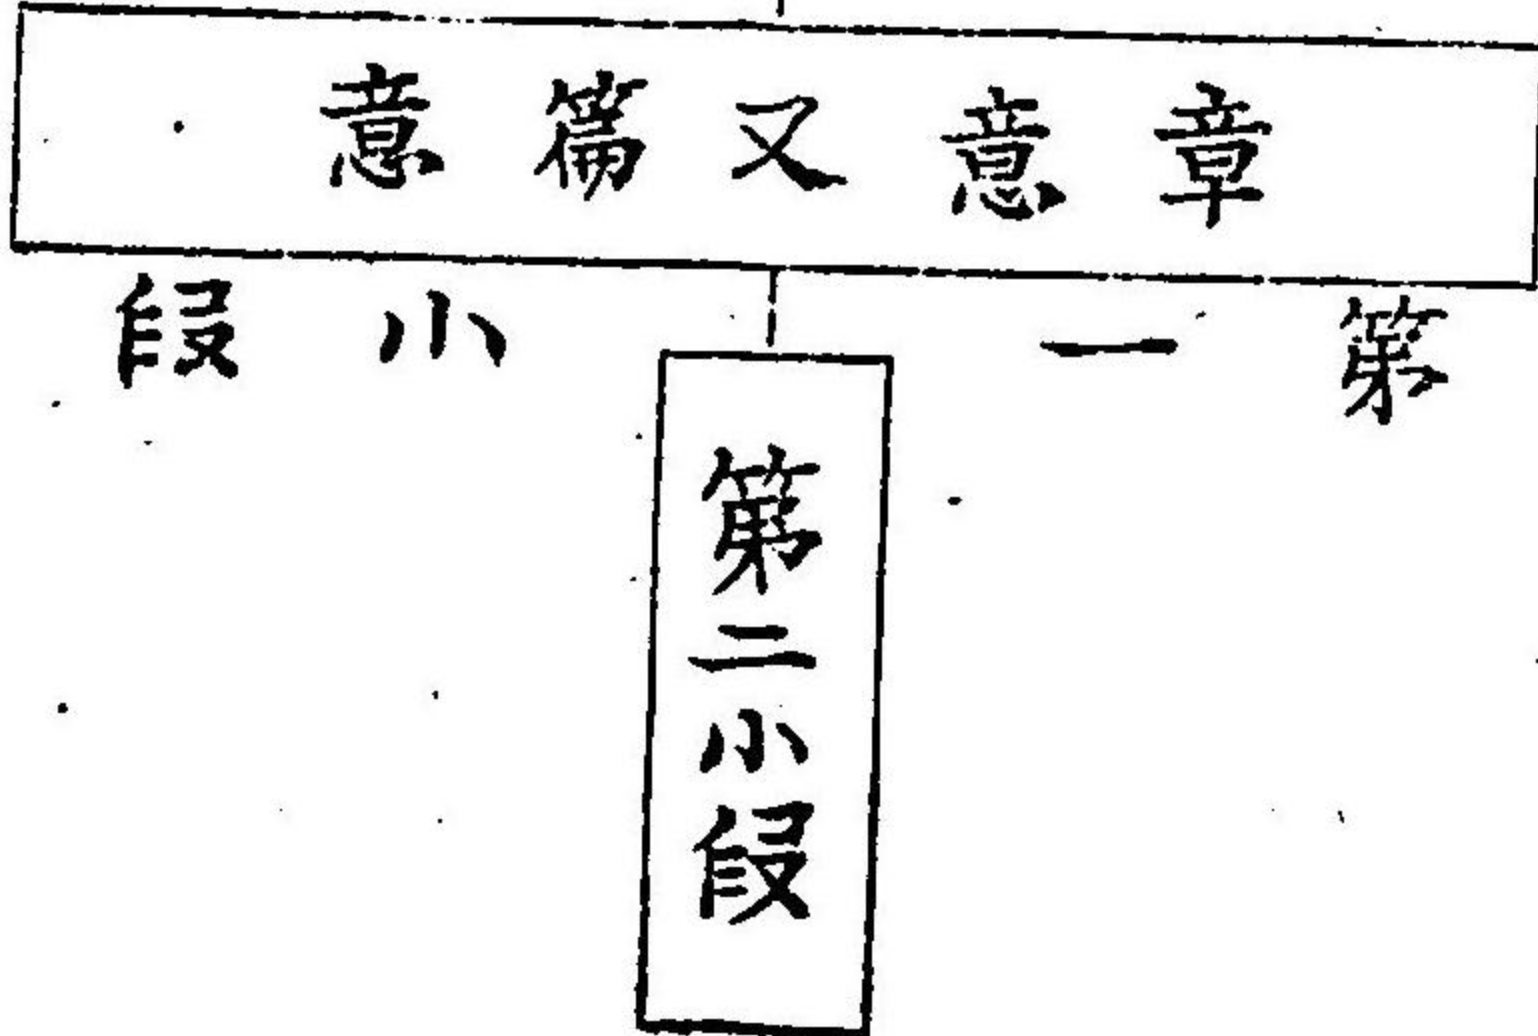 章意又篇意
第一小段
第二小段